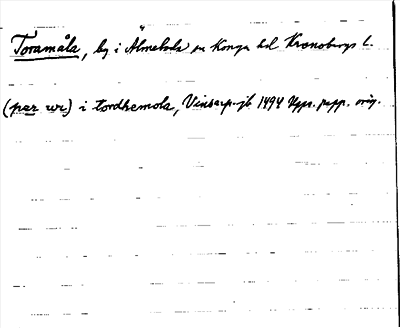 Toramåla, by i Älmeboda sn Konga hd Kronobergs l.
(per wr) i tordhemola, Vinsarp-jb 1494 Upps. papp. orig.